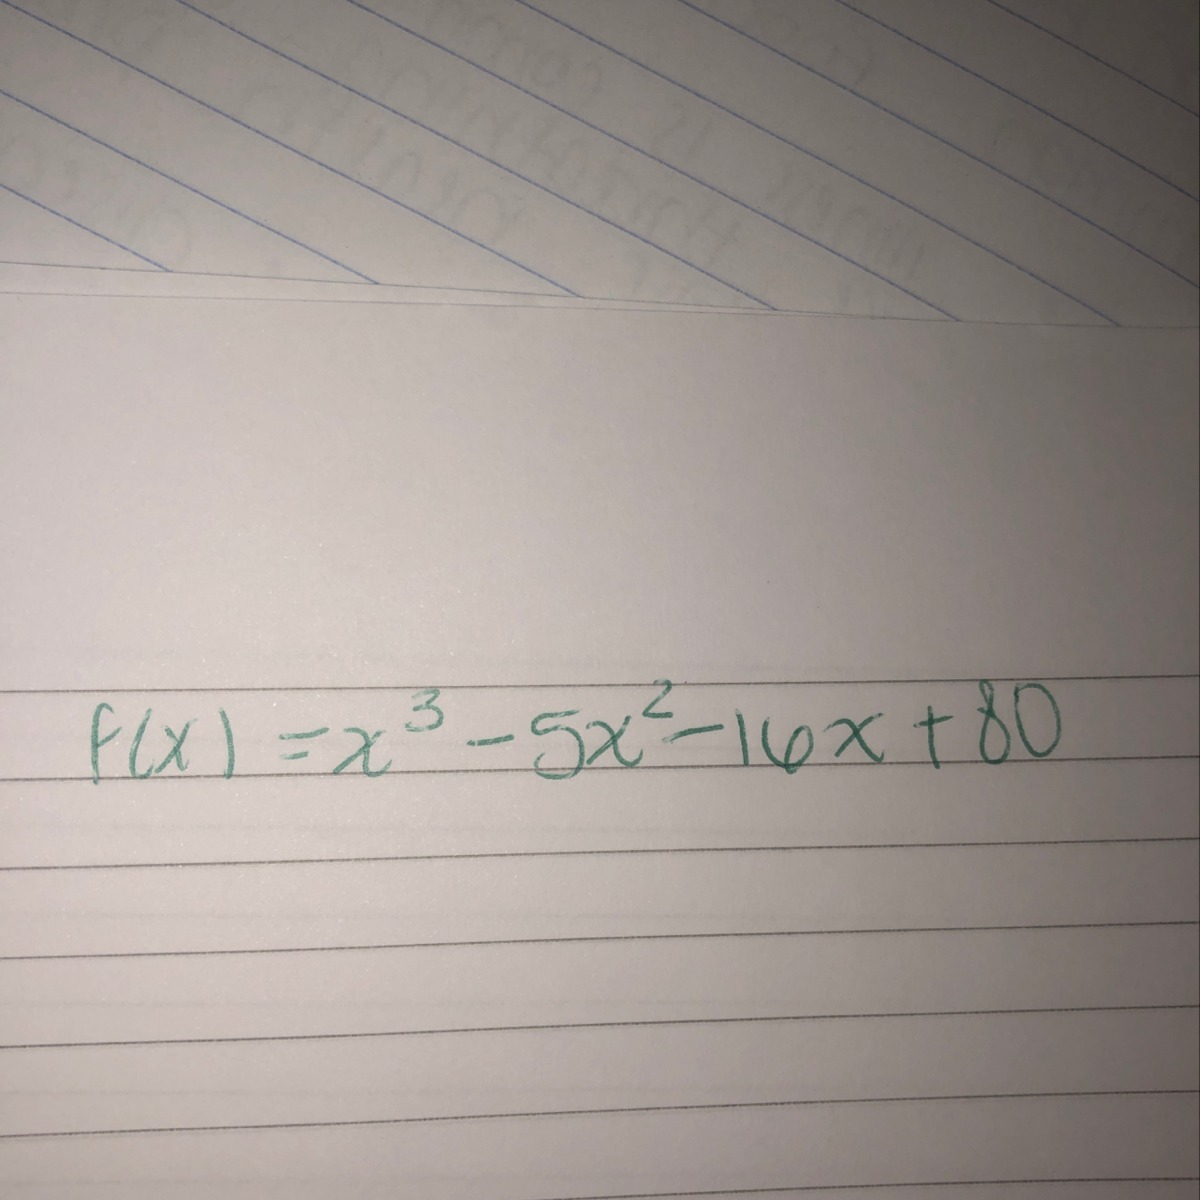 f(x) = x³ - 5x² - 16x + 80